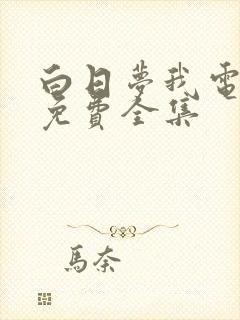 白日夢我電
免費全集
馬奈